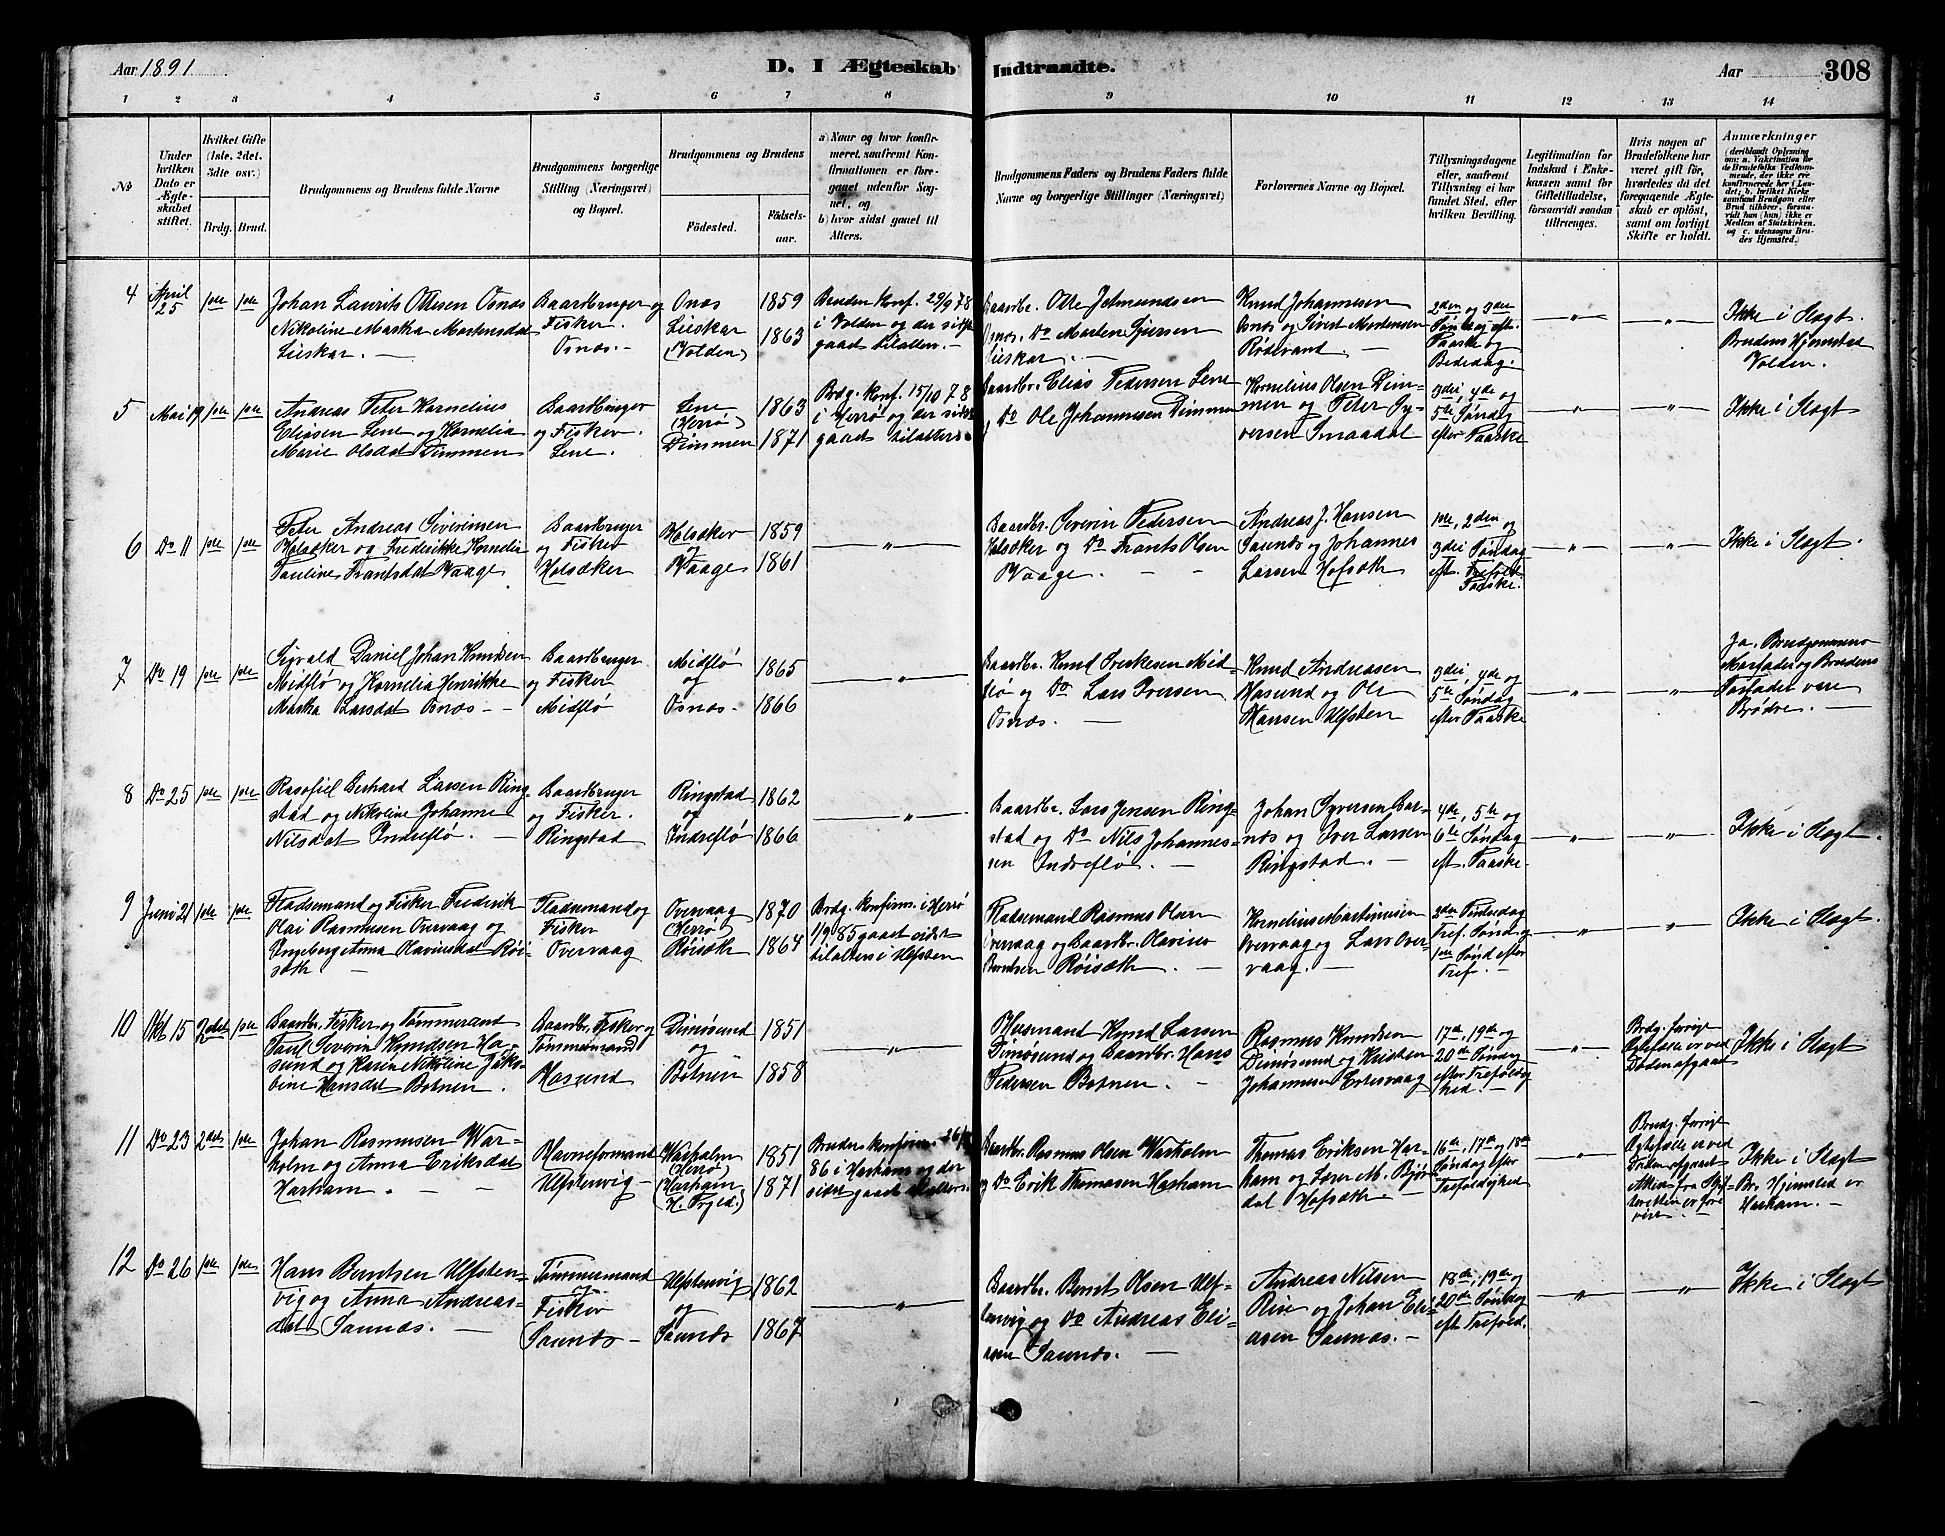 Aar 1891
D. I Ægteskab Indtraadte.
Aar 308
1 2 3 4 5 6 7 8 9 10 11 12 13 14
No
Under hvilken Dato er Ægteskabet stiftet.
Hvilket Gifte (1ste, 2det, 3die osv.)
Brdg. Brud.
Brudgommens og Brudens fulde Navne
Brudgommens borgerlige Stilling (Næringsvei) og Bopæl.
Brudgommens og Brudens
Födested.
Födselsaar.
a) Naar og hvor konfirmeret, saafremt Konfirmationen er foregaaet udenfor Sognet, og
b) hvor sidst gaaet til Alters.
Brudgommens Faders og Brudens Faders fulde Navne og borgerlige Stillinger (Næringsvei)
Forlovernes Navne og Bopæl.
Tillysningsdagene eller, saafremt Tillysning ei har fundet Sted, efter hvilken Bevilling.
Legitimation for Indskud i Enkekassen samt for Giftetilladelse, forsaavidt saadan tiltrænges.
Hvis nogen af Brudefolkene har været gift för, hvorledes da det foregaaende Ægteskab er oplöst, samt om lovligt Skifte er holdt.
Anmærkninger
(deriblandt Oplysning om: a. Vakcination for de Brudefolks Vedkommende, der ikke ere konfirmerede her i Landet; b. hvilket Kirkesamfund Brudgom eller Brud tilhörer, forsaavidt han (hun) ikke er Medlem af Statskirken, og c. udensogns Brudes Hjemsted.)
4 April 25 1ste 1ste
Johan Laurits Ottesen Osnæs
Nikoline Maska Martinsdat
Lieskar.
Baardbruger og
Fisker.
Osnæs.
Osnæs
Lieskar
(Volden)
1859
1863
Bruden konf. 29/9 78
i Volden og der sidst
gaaet til alters.
Baardbr. Otte Jetmundsen
Osnæs. Do Morten Sjursen
Lieskar.
Knud Johannesen
Osnæs og Sivert Mortensen
Rödsvand.
2den og 3die
Sönd og eft.
Paaske og
Bededag.
Ikke i Slægt.
Brudens Hjemsted
Volden.
5 Mai 19 1ste 1ste
Andreas Peter Kornelius
Eliasen Lene og Kornelia
Marie Olsdat Dimmen
Baardbruger
og Fisker
Lene.
Lene
(Herrö)
Dimmen
1863
1871
Brdg. konf. 15/10 78
i Herrö og der sidst
gaaet til alters.
Baardbr. Elias Pedersen Lene
og Do Ole Johannesen Dimmen
Kornelius Olsen Dimmen og Peter Syversen Smaadal
3die, 4de og
5te Söndag
efter Paaske
Ikke i Slægt
6 Do 11 1ste 1ste
Peter Andreas Severinsen
Holsæker og Frederikke Kornelia
Pauline Frantsdat Vaage
Baardbruger
og Fisker
Holsæker
Holsæker
og
Vaage
1859
1861
Baardbr. Severin Pedersen
Holsæker og Do Frants Olsen
Vaage.
Andreas J. Hansen
Saunæs og Johannes
Larsen Hofsæth
1ste, 2den og
3die Söndag
eft.
Paaske.
Ikke i Slægt.
7 Do 19 1ste 1ste
Sigvald Daniel Johan Knudsen
Midflö og Kornelia Henrikke
Maska Larsdat Osnæs
Baardbruger
og Fisker
Midflö
Midflö
og
Osnæs.
1865
1866
Baardbr. Knud Sveikesen Midflö og Do Lars Iversen
Osnæs.
Knud Andreasen
Hasund og Ole
Hansen Ulfsten
3die, 4de og
5te Söndag
efter Paaske
Ja. Brudgommens
Morfader og Brudens
Farfader vare
Brödre.
8 Do 25 1ste 1ste
Rasofiel Berhard Larsen Ringstad og Nikoline Johanne
Nilsdat Indreflö.
Baardbruger
og Fisker.
Ringstad
Ringstad
og
Indreflö
1862
1866
Baardbr. Lars Jensen Ringstad og Do Nils Johannessen Indreflö.
Johan Syversen Barnæs og Iver Larsen
Ringstad.
4de, 5te og
6te Söndag
eft. Paaske.
Ikke i Slægt.
9 Juni 21 1ste 1ste
Pladsemand og Fisker Frederik
Olai Rasmussen Overvaag og
Ingeborg Anna Olavinsdat Röisæth
Pladsemand og
Fisker
Overvaag
Overvaag
(Herrö)
Röisæth
1870
1864
Brdg. konfirm. i Herrö
85 gaaet sidst
til alters i Ulfsten
Pladsemand Rasmus Olsen
Overvaag og Baardbr. Olavius
Berntsen Röisæth.
Kornelius Martinusen
Overvaag og Lars Overvaag.
2den Pintsedag
Tref. Söndag
1ste Sönd efter
Tref.
Ikke i Slægt.
10 Okt 15 2det 1ste
Baardbr. Fisker og Tömmermand
Paul Severin Knudsen Hasund og Karen Nikoline Jakobine Hansdat Botnen.
Baardbr. Fisker og
Tömmermand
Hasund
Dimösund
og
Botnen
1851
1858
Husmand Knud Larsen
Dimösund og Baardbr. Hans
Pedersen Botnen.
Rasmus Knudsen
Dimösund og Kristen
Johannesen Ertesvaag
17de, 19de og
20de Söndag
efter Trefoldighed.
Brdg. forrige
Ægtefælle er ved
Döden afgaaet
Ikke i Slægt
11 Do 23 2det 1ste
Johan Rasmusen Warholm og Anna Eriksdat
Harham.
Havneformand
Ulfstenvig
Warholm
(Herrö)
(Harham
H. Prgjld.)
1851
1871
Bruden konfirm. 26/
86 i Harham og der
sidst gaaet til alters.
Baardbr. Rasmus Olsen Warholm
og Do Erik Thomasen Harham
Thomas Eriksen Harham og
Hofsæth
16de, 17de og 18de
Söndag efter
Trefoldighed
Brdg. forrige
Ægtefælle er ved
Döden afgaaet
Attest fra Skifteretten er forevist.
Ikke i Slægt
Br. Hjemsted er
Harham.
12 Do 26 1ste 1ste
Hans Berntsen Ulfstenvig og Anna Andreasdat Saunæs.
Tömmermand
og
Fisker
Saunæs
Ulfstenvig
og
Saunæs
1862
1867
Baardbr. Bernt Olsen Ulfstenvig og Do Andreas Eliasen Saunæs.
Andreas Nilsen
Rise og Johan Eliasen Saunæs.
18de, 19de og
20de Söndag
eft Trefold.
Ikke i Slægt